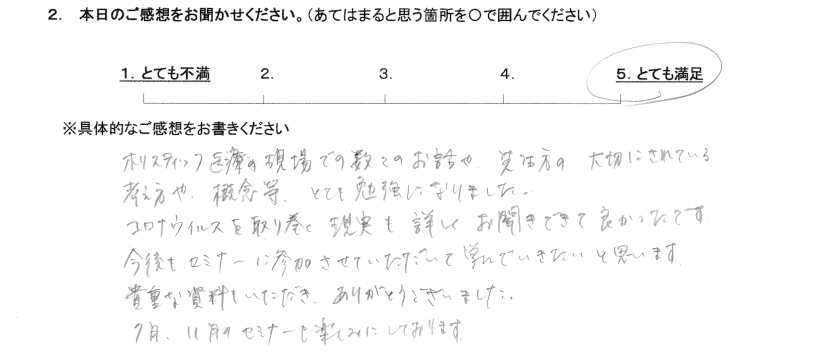 2. 本日のご感想をお聞かせください。(あてはまると思う箇所を○で囲んでください)
1. とても不満 2. 3. 4. 5. とても満足
※具体的なご感想をお書きください
ホリスティック医療の現場での数々のお話や、先生方の大切にされている
考え方や、概念等、とても勉強になりました。
コロナウイルスを取り巻く現実も詳しくお聞きできて良かったです
今後もセミナーに参加させていただいて学んでいきたいと思います。
貴重な資料もいただき、ありがとうございました。
7月、11月のセミナーも楽しみにしております。